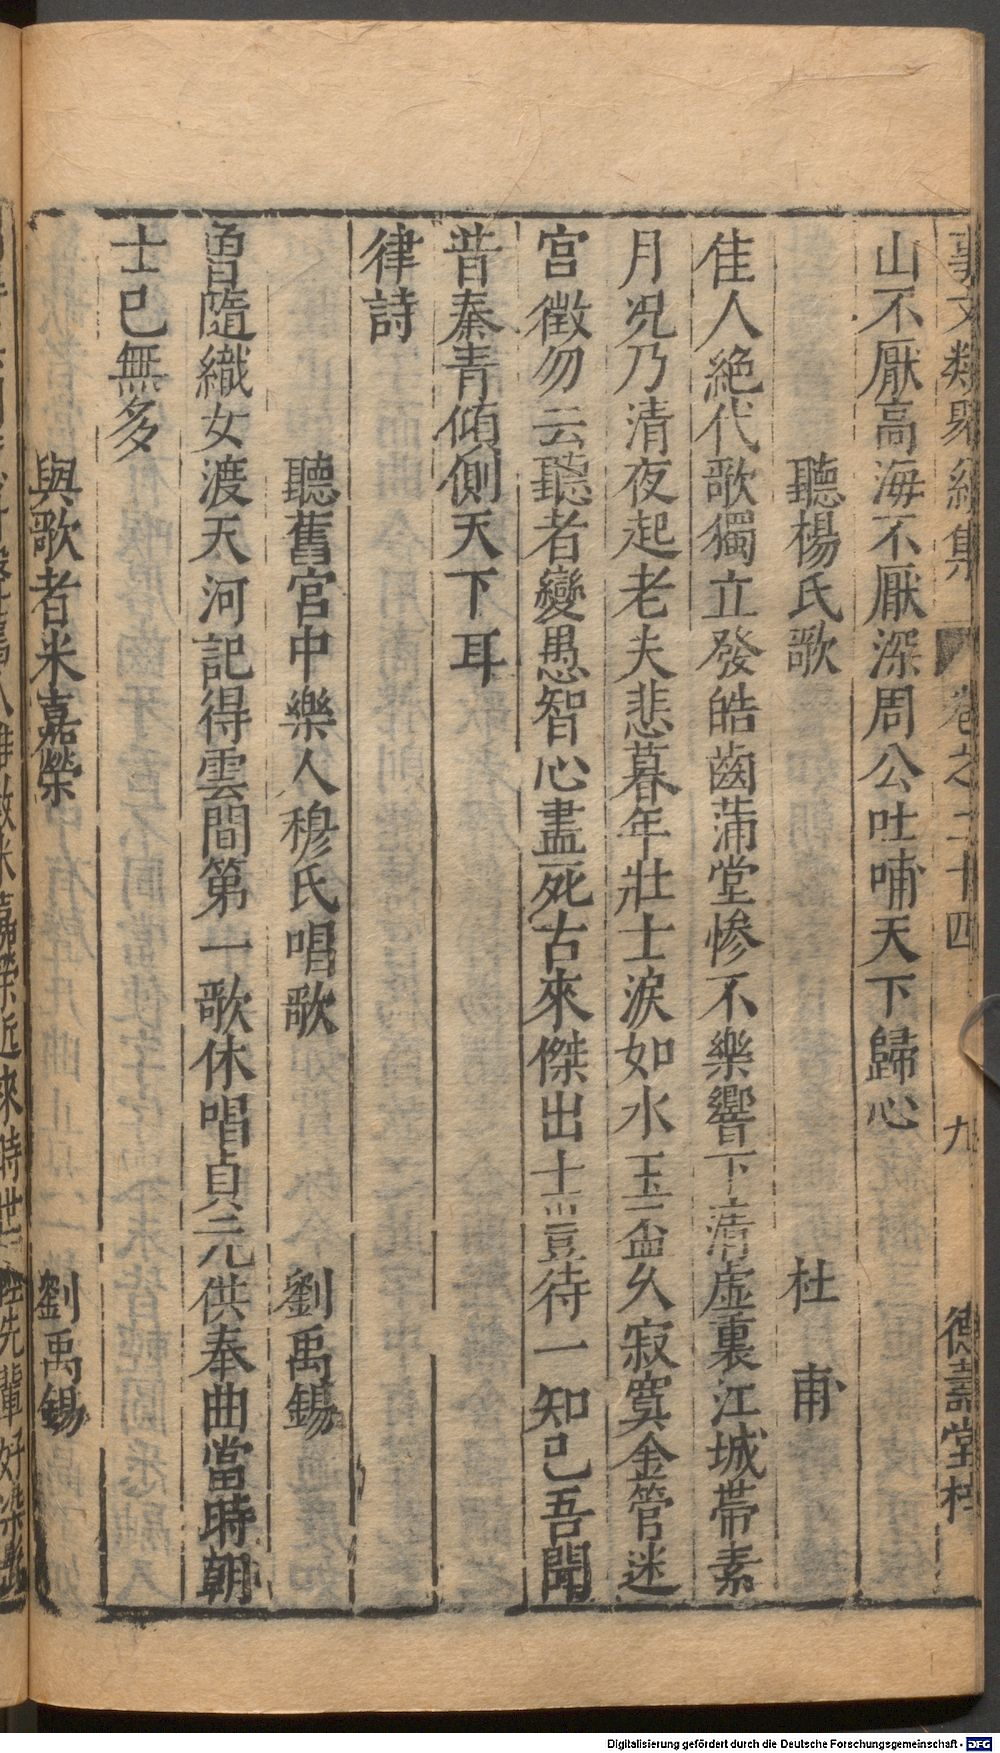 事文類聚續集 卷之二十四 九 德壽堂梓
山不厭高海不厭深周公吐哺天下歸心
聽楊氏歌 杜甫
佳人絶代歌獨立發皓齒滿堂慘不樂響下清虛裏江城帶素
月况乃清夜起老夫悲暮年壯士淚如水玉盃久寂寞金管迷
宮徵勿云聽者變愚智心盡死古來傑出士豈待一知己吾聞
昔秦青傾側天下耳
律詩
聽舊宮中樂人穆氏唱歌 劉禹錫
曾隨織女渡天河記得雲間第一歌休唱貞元供奉曲當時朝
士已無多
與歌者米嘉榮 劉禹錫
數米嘉榮近來時世輕先輩好染
Digitalisierung gefördert durch die Deutsche Forschungsgemeinschaft - DFG